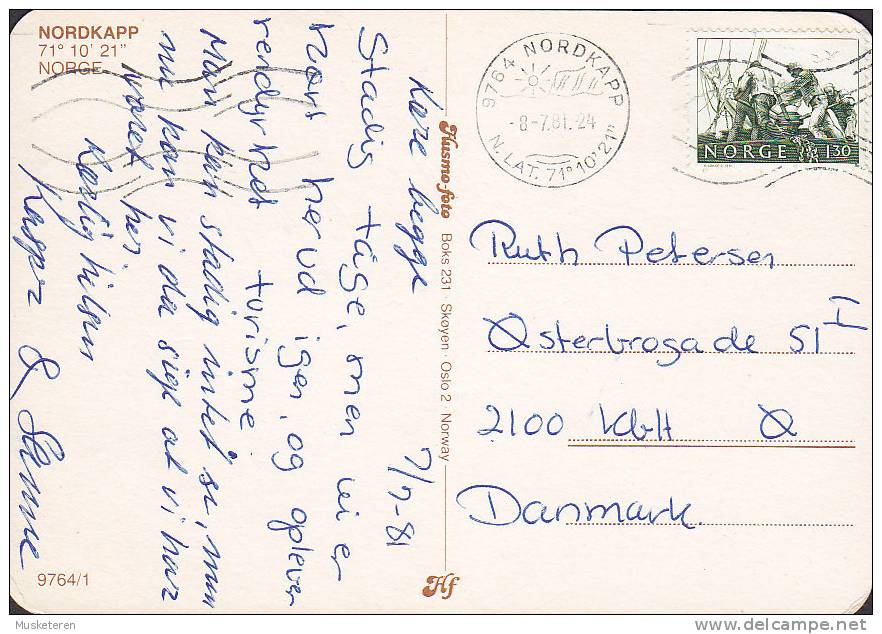 NORDKAPP
71° 10' 21"
NORGE
Kære begge 7/7-81
Stadig tåge, men vi er
kørt herud igen, og oplever
rendyrket turisme.
Man kan stadig intet se, men
nu kan vi da sige at vi har
været her.
Kærlig hilsen
& Hanne
9764/1
Husmo-foto Boks 231 · Skøyen · Oslo 2 Norway
Hf
9764 NORDKAPP
-8-7.81.-24
N. LAT. 71°10'21"
NORGE 1.30
Ruth Petersen
Østerbrogade 51 I
2100 Kbh Ø
Danmark.
Musketeren
delcampe.net